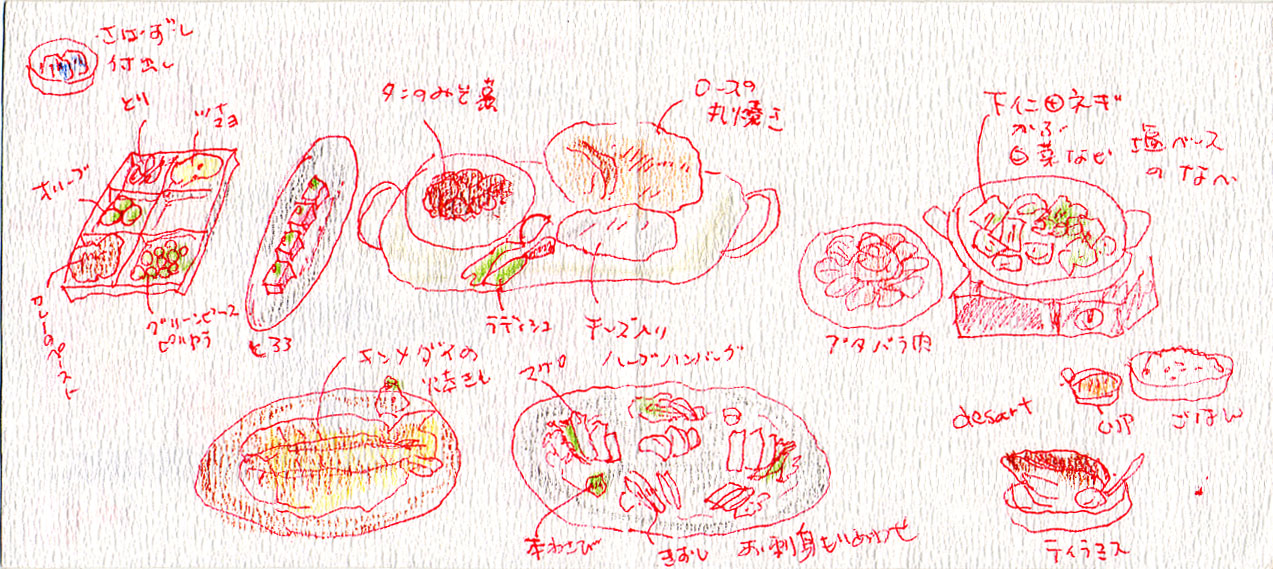 さばずし
付出し
とり
ツナ
マヨ
オリーブ
カレーのペースト
グリーンピース
とろろ
タンのみそ煮
ロースの
丸焼き
ラディシュ
チーズ入り
ハーブハンバーグ
下仁田ネギ
かぶ
白菜など
塩ベース
のなべ
ブタバラ肉
キンメダイの
塩焼き
マグロ
本わさび
きずし
お刺身もりあわせ
desart
ごはん
ティラミス